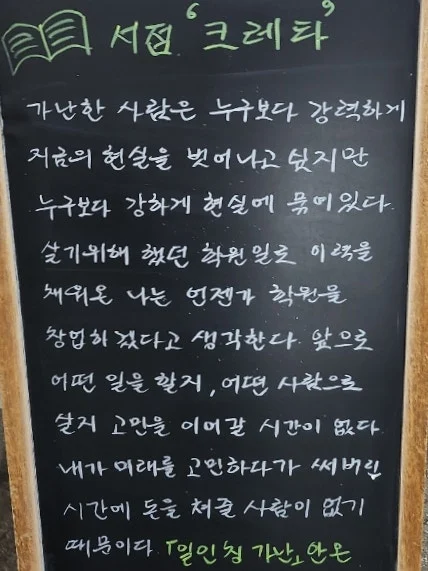 서점 '크레타'
가난한 사람은 누구보다 강력하게
지금의 현실을 벗어나고 싶지만
누구보다 강하게 현실에 묶여있다.
살기위해 했던 학원일로 이력을
채워온 나는 언젠가 학원을
창업하겠다고 생각한다. 앞으로
어떤 일을 할지, 어떤 사람으로
살지 고민을 이어갈 시간이 없다.
내가 미래를 고민하다가 써버린
시간에 돈을 쳐줄 사람이 없기
때문이다. 「일인칭 가난」 안온